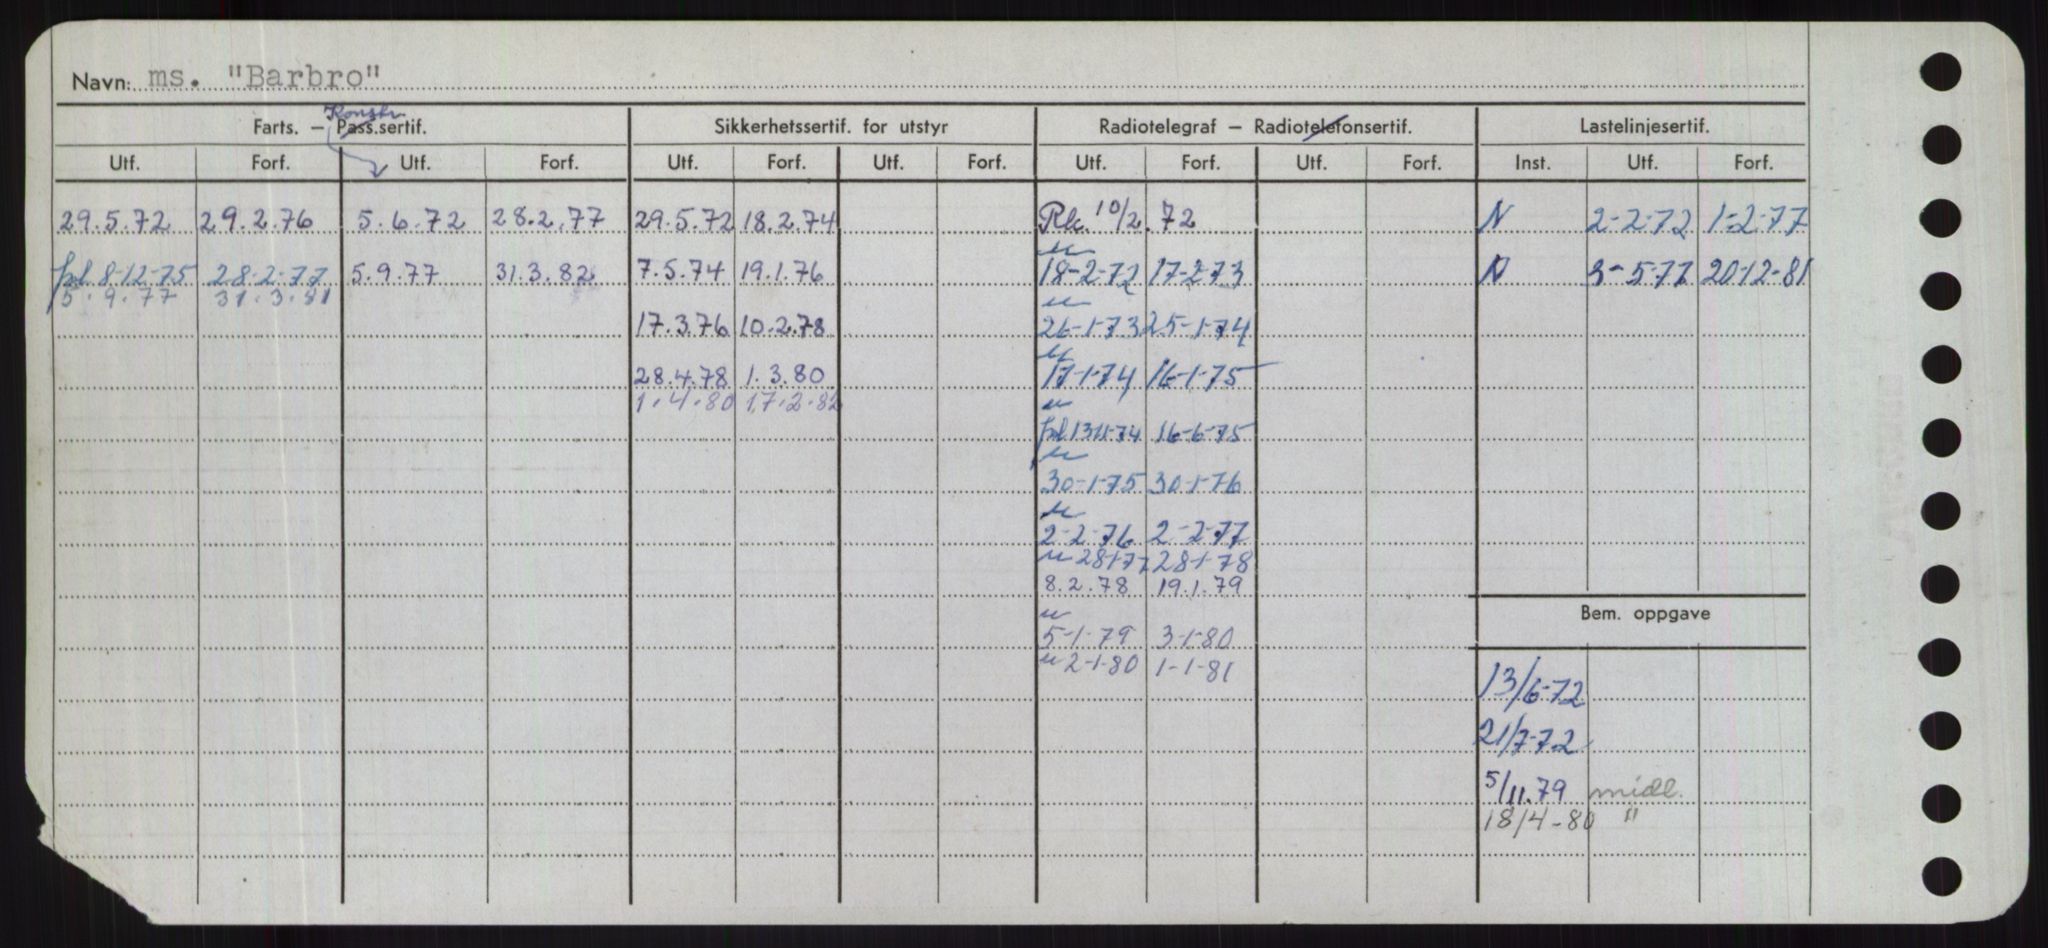 Navn: ms. "Barbro"
Konstr.
Farts. — Pass.sertif. Sikkerhetssertif. for utstyr Radiotelegraf — Radiotelefonsertif. Lastelinjesertif.
Utf. Forf. Utf. Forf. Utf. Forf. Utf. Forf. Utf. Forf. Utf. Forf. Inst. Utf. Forf.
29.5.72 29.2.76 5.6.72 28.2.77 29.5.72 18.2.74 Rk. 10/2.72 N 2-2-72 1-2-77
fol 8-12-75 28-2-77 5.9.77 31.3.82 7.5.74 19.1.76 18-2-72 17-2-73 N 3-5-77 20-12-81
5.9.77 31.3.81
17.3.76 10.2.78 26-1-73 25-1-74
28.4.78 1.3.80 17-1-74 16-1-75
1.4.80 17.2.82
fol 13-11-74 16-6-75
30-1-75 30-1-76
2-2-76 2-2-77
28-1-77 28-1-78
8.2.78 19.1.79
Bem. oppgave
5-1-79 3-1-80
2-1-80 1-1-81
13/6-72
21/7-72
5/11.79 midl.
18/4-80 "